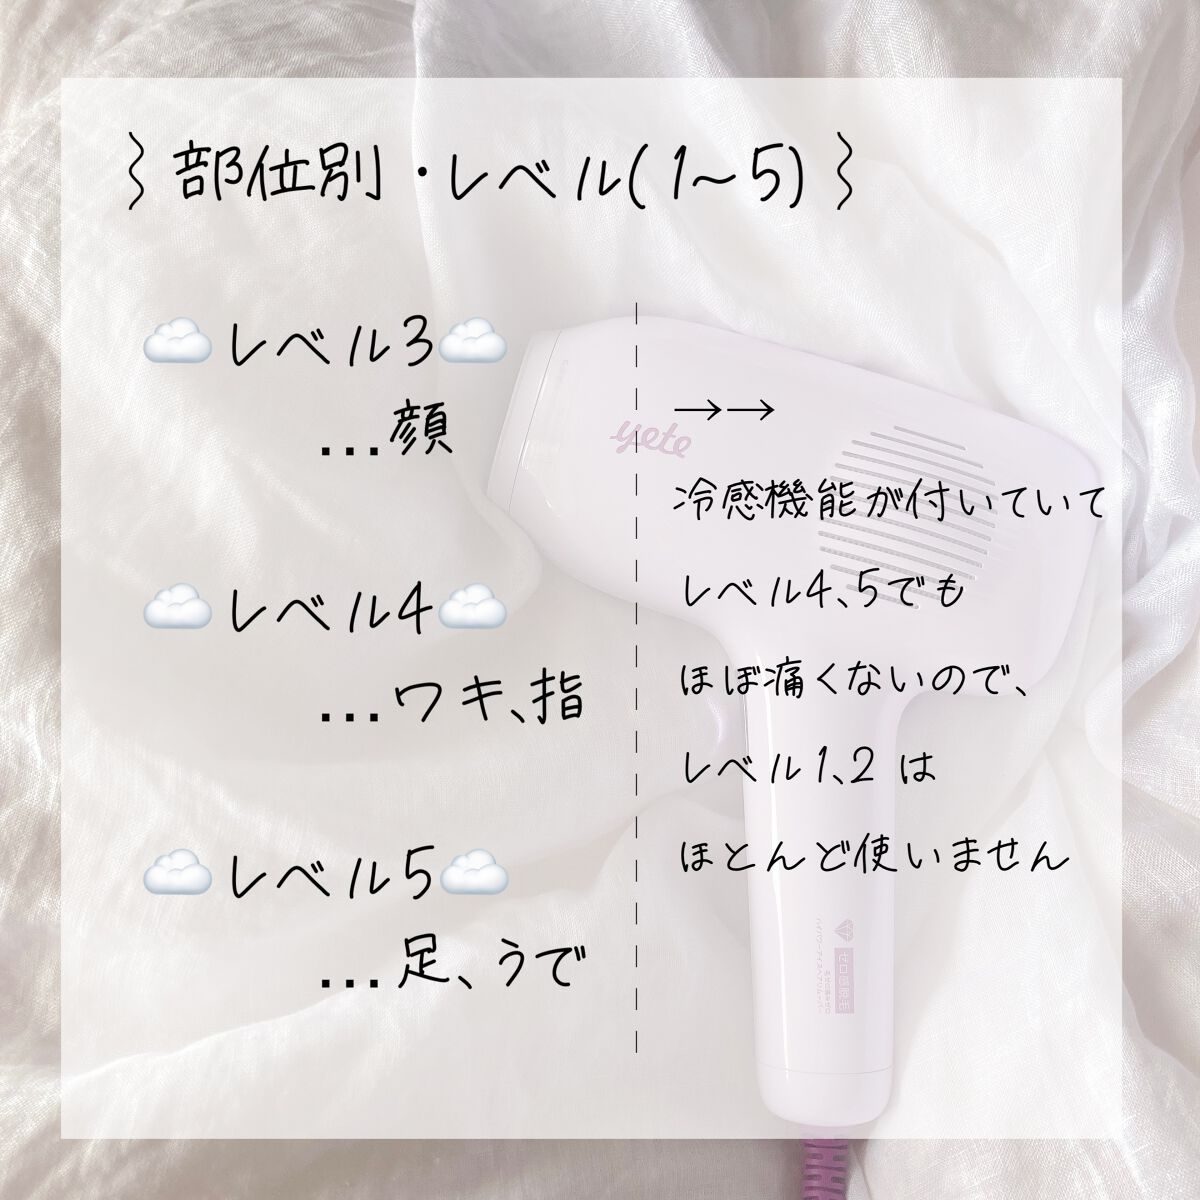 部位別・レベル(1~5)
レベル3
...顔
レベル4
...ワキ、指
レベル5
...足、うで
→→
冷感機能が付いていて
レベル4、5でも
ほぼ痛くないので、
レベル1、2 は
ほとんど使いません
yete
ゼロ感脱毛